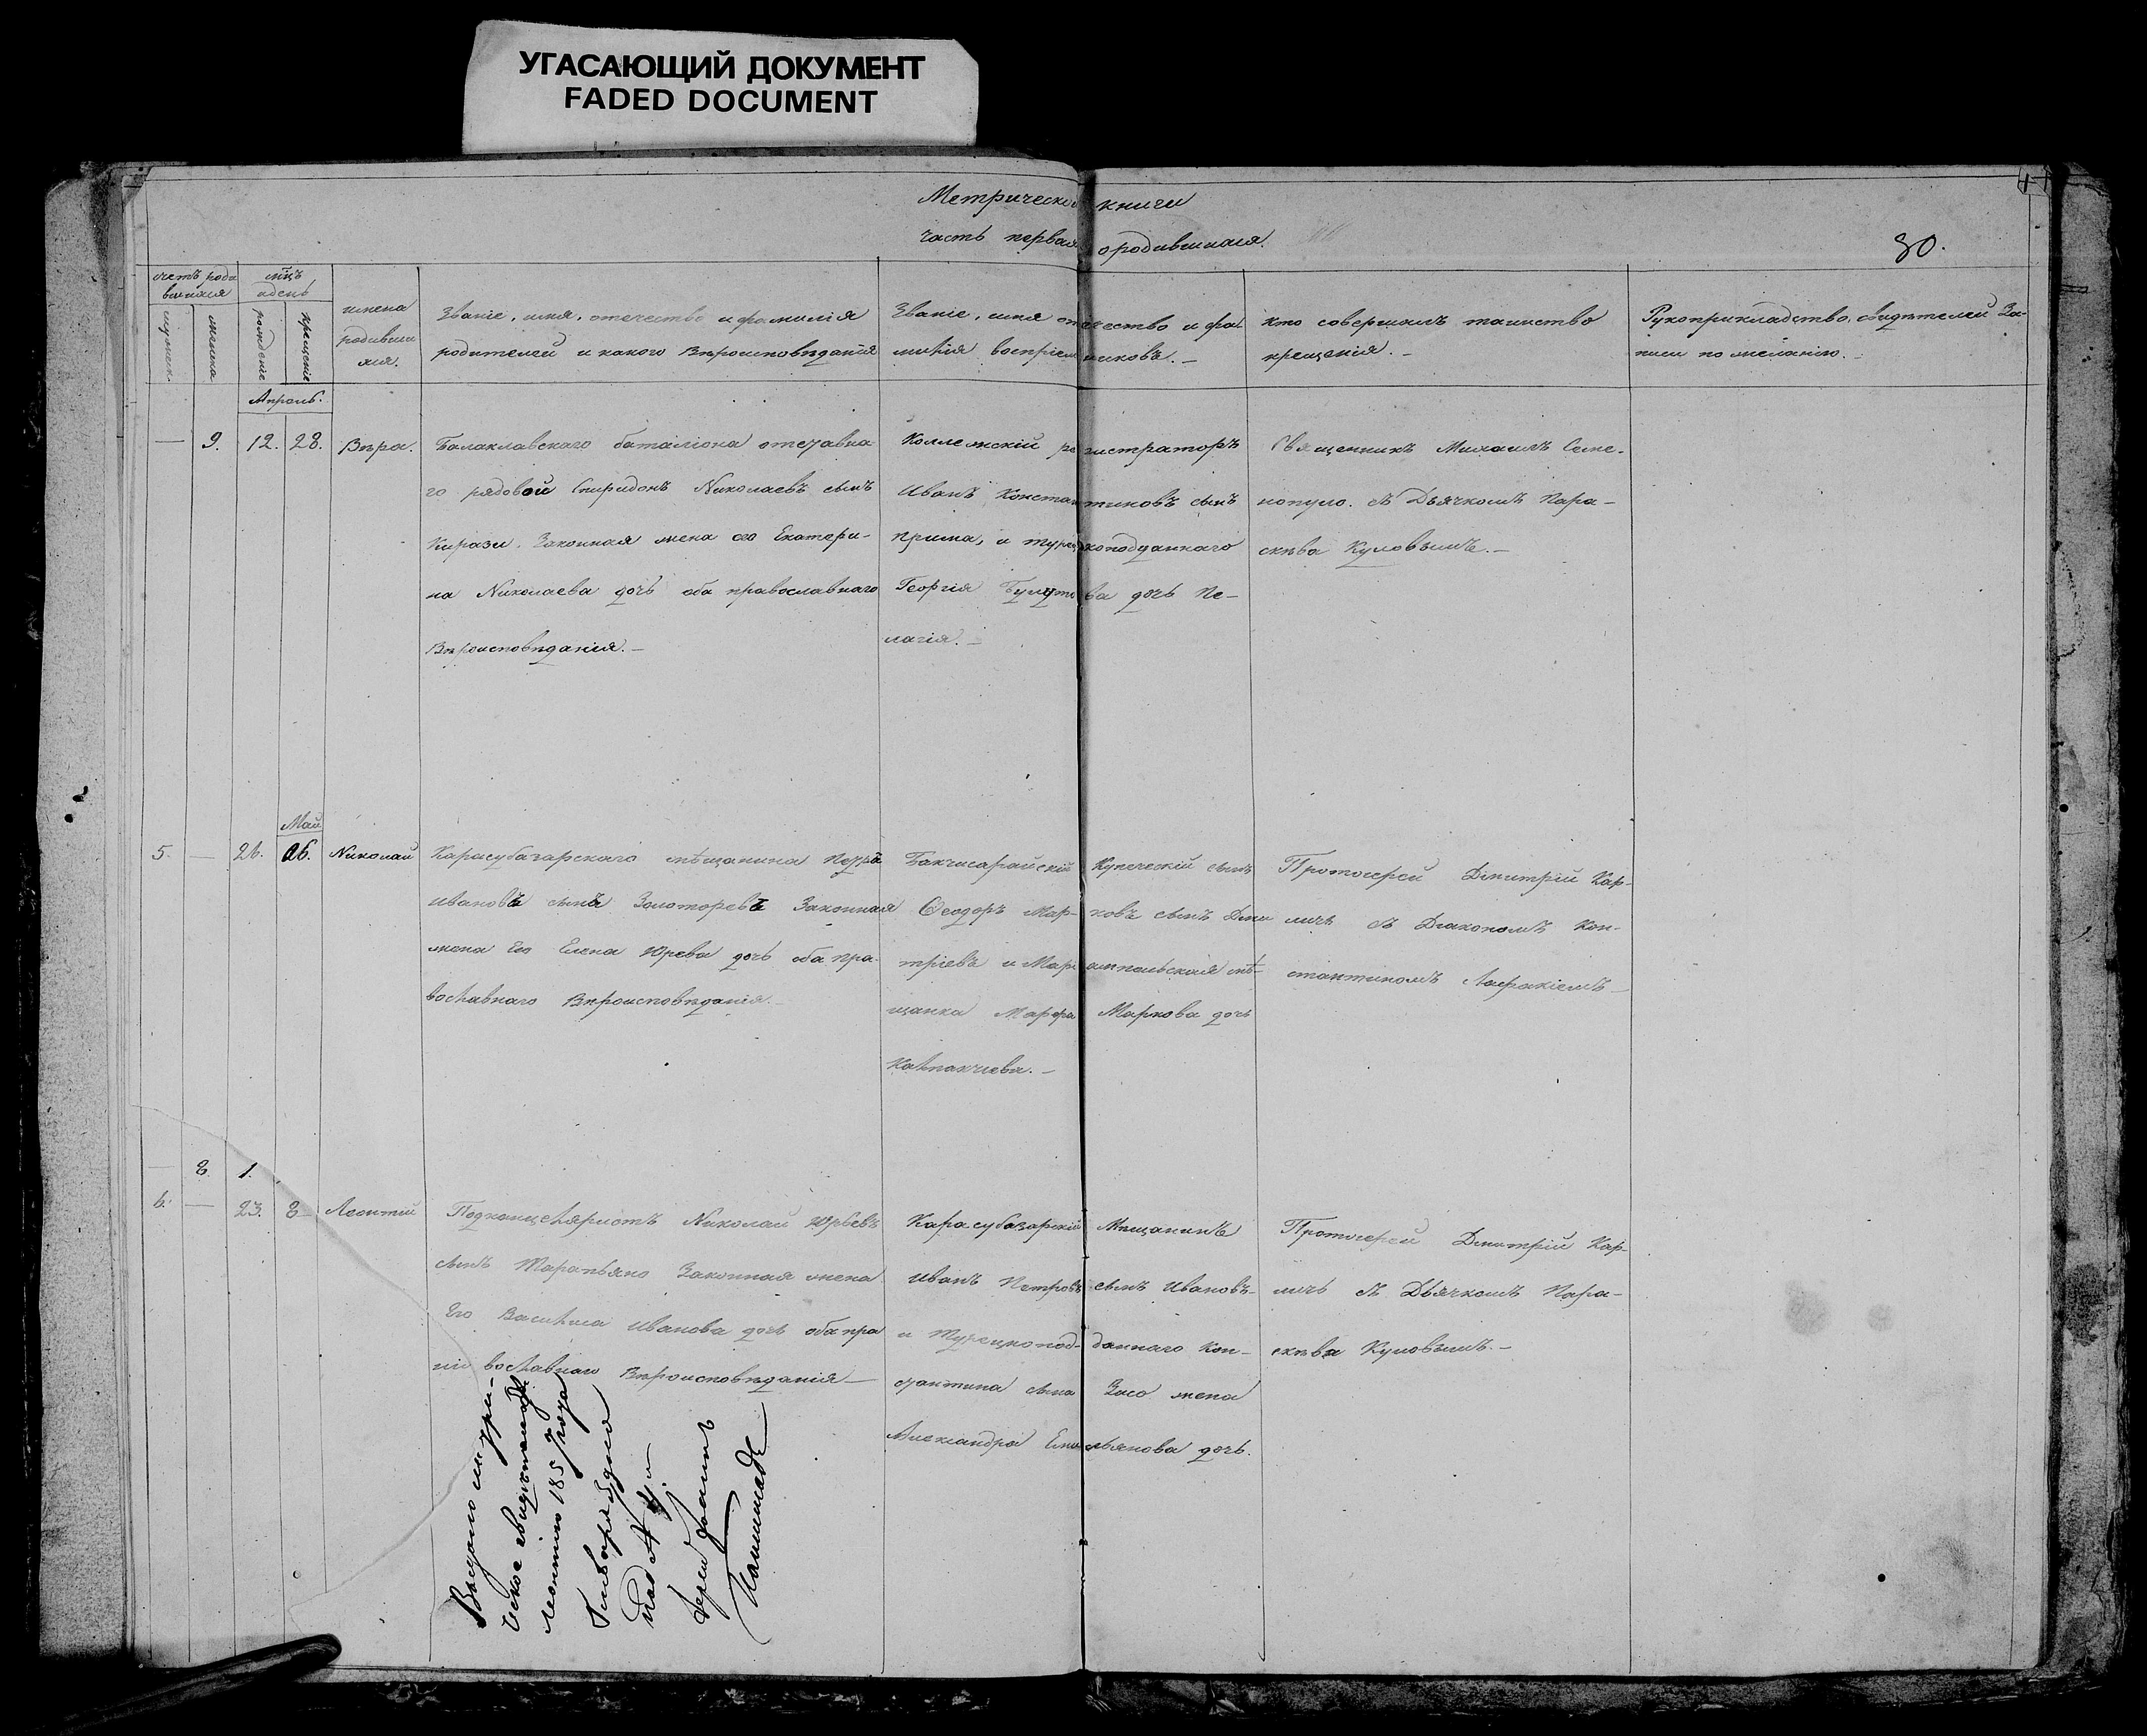 УГАСАЮЩИЙ ДОКУМЕНТ
FADED DOCUMENT
Метрической книги
часть первая о родившихся.
30.
счетъ роди
вшихся
мѣцъ
и день
мужеск.
женска
рожденіе
крещеніе
имена
родивши
хся.
Званіе, имя, отечество и фамилія
родителей и какого Вѣроисповѣданія
Званіе, имя отечество и фа
милія воспріемниковъ. —
кто совершалъ таинство
крещенія. —
Рукоприкладство, свидѣтелей За-
писи по желанію. —
Апрель.
— 9. 12. 28. Вѣра.
Балаклавскаго баталіона отставна
го рядовой Спиридонъ Николаевъ сынъ
Кирази. Законная жена его Екатери-
на Николаева дочь оба православнаго
Вѣроисповѣданія. —
Коллежскій регистраторъ
Иванъ Константиновъ сынъ
Прима, и турецкоподданнаго
Георгія дочь Пе-
лагія. —
Священникъ Михаилъ Семе-
нопуло. съ Дьячкомъ Пара-
скѣва Куловымъ. —
Май
5. — 26. 26. Николай
Карасубазарскаго мѣщанина Петра
Иванова сына Золоторева Законная
жена Его Елена Юрева дочь оба пра-
вославнаго Вѣроисповѣданія —
Бакчисарайскій Купеческій сынъ
Ѳеодоръ Мар- ковъ сынъ Дми
тріевъ и Маріампольская мѣ-
щанка Марфа Маркова дочь
Калпакчиева. —
Протоіерей Дмитрій Кар-
личъ съ Діакономъ Кон-
стантиномъ Лафакіемъ —
— 8 1.
6. — 23. 8 Леонтій
Подканцеляристъ Николай Юрьевъ
сынъ Тарапьяно Законная жена
Его Василиса Иванова дочь оба пра
вославнаго Вѣроисповѣданія —
Карасубазарскій Мѣщанинъ
Иванъ Петровъ сынъ Ивановъ-
и Турецкопод- даннаго Кон-
стантина сына Зисо жена
Александра Емельянова дочь.
Протоіерей Дмитрій Кар-
личъ съ Дьячкомъ Пара-
скѣва Куловымъ. —
Выдано метри-
ческое свидетельство
Леонтию 185 года
Генваря дня
под №
Іерей Іоаннъ